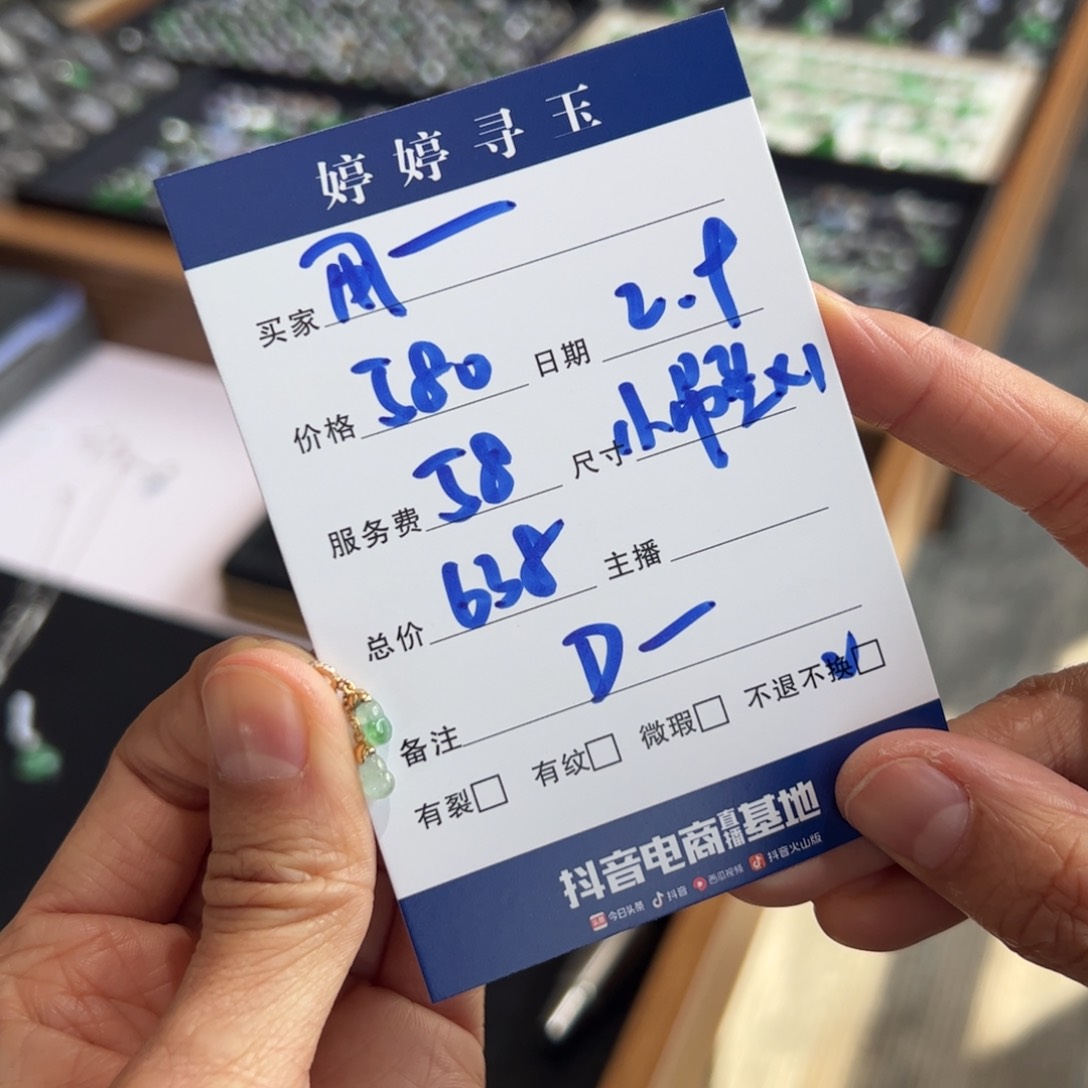 婷婷寻玉
买家 用一
价格 580 日期 2.9
服务费 58 尺寸 小 x1
总价 638 主播
备注 D一
有裂□ 有纹□ 微瑕□ 不退不换□
抖音电商直播基地
今日头条 抖音 西瓜视频 抖音火山版